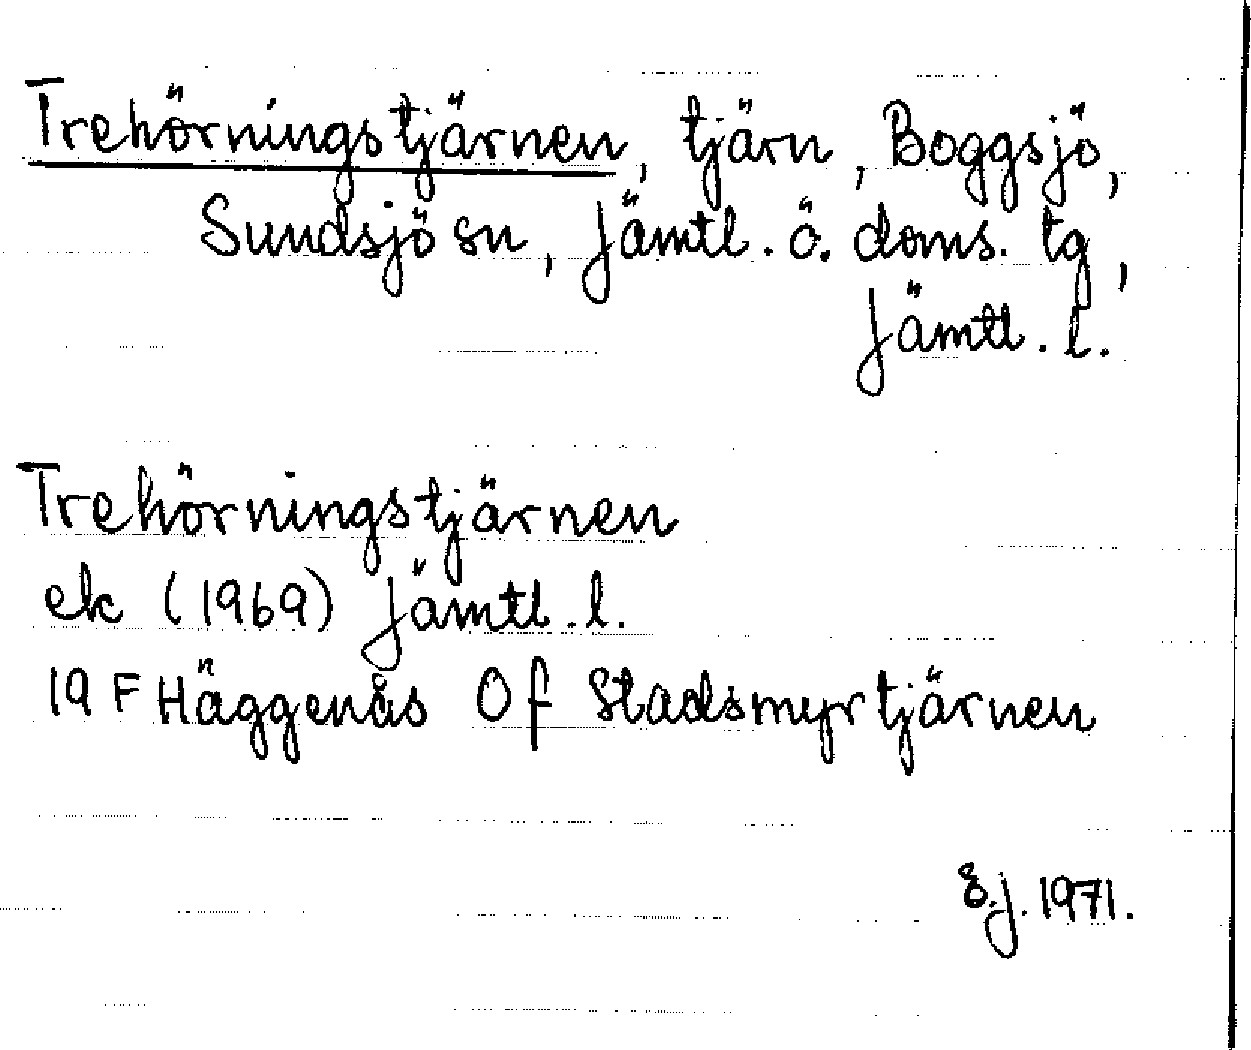 Trehörningstjärnen, tjärn, Boggsjö,
Sundsjö sn, Jämtl. ö. doms. tg,
Jämtl. l.
Trehörningstjärnen
ek (1969) Jämtl. l.
19 F Häggenås 0 f Stadsmyrtjärnen
E.J. 1971.